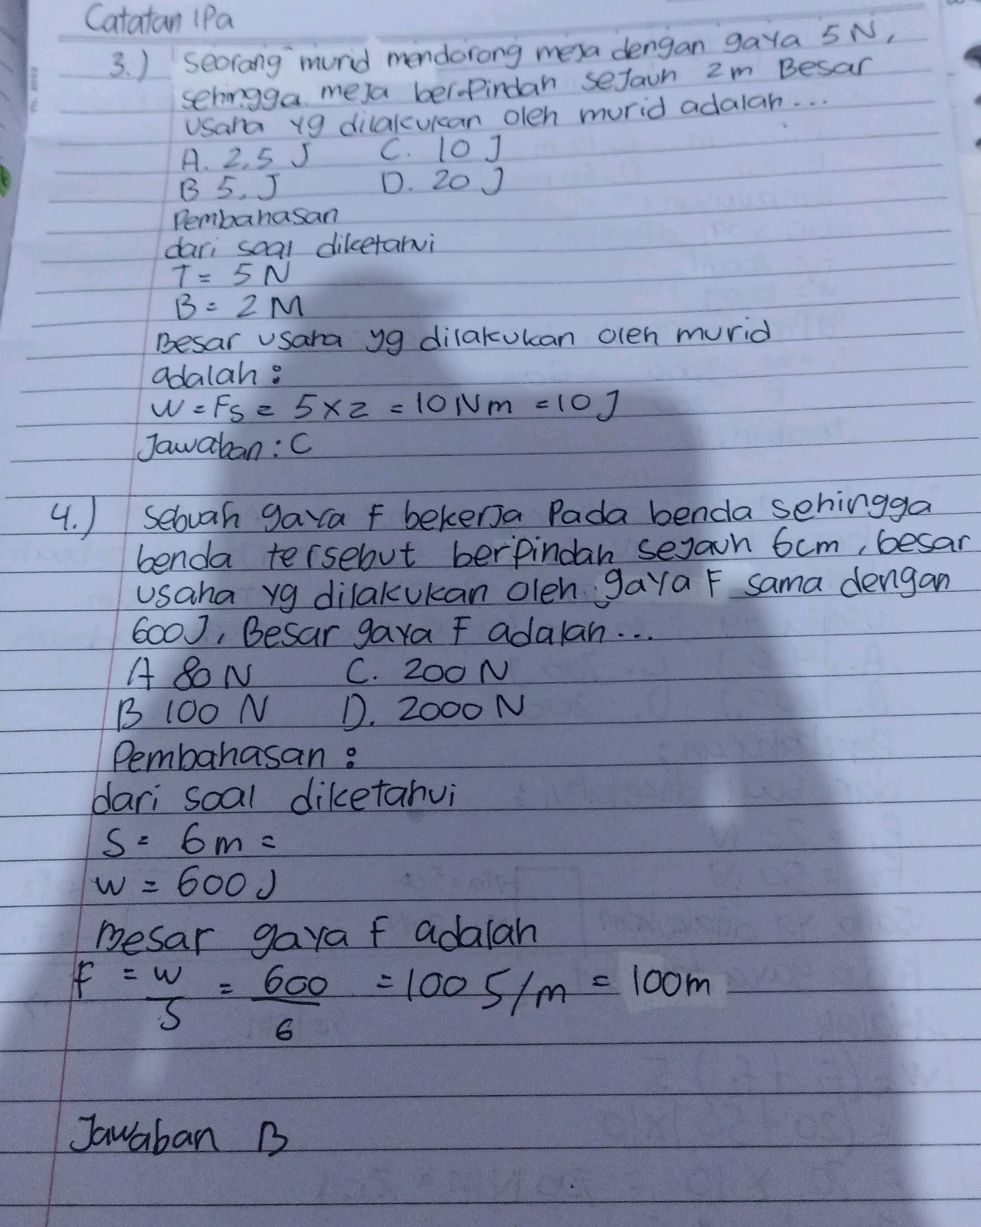 Catatan IPa
3.) Seorang murid mendorong meja dengan gaya 5 N,
sehingga meja berpindah sejauh 2m Besar
usaha yg dilakukan oleh murid adalah...
A. 2,5 J C. 10 J
B 5, J D. 20 J
Pembahasan
dari soal diketahui
T = 5 N
B = 2 M
Besar usaha yg dilakukan oleh murid
adalah :
W = Fs = 5 x 2 = 10 Nm = 10 J
Jawaban : C
4.) Sebuah gaya F bekerja Pada benda sehingga
benda tersebut berpindah sejauh 6cm, besar
usaha yg dilakukan oleh gaya F sama dengan
600J, Besar gaya F adalah...
A 80 N C. 200 N
B 100 N D. 2000 N
Pembahasan :
dari soal diketahui
S = 6 m =
W = 600 J
Besar gaya F adalah
F = W/S = 600/6 = 100 5/m = 100m
Jawaban B